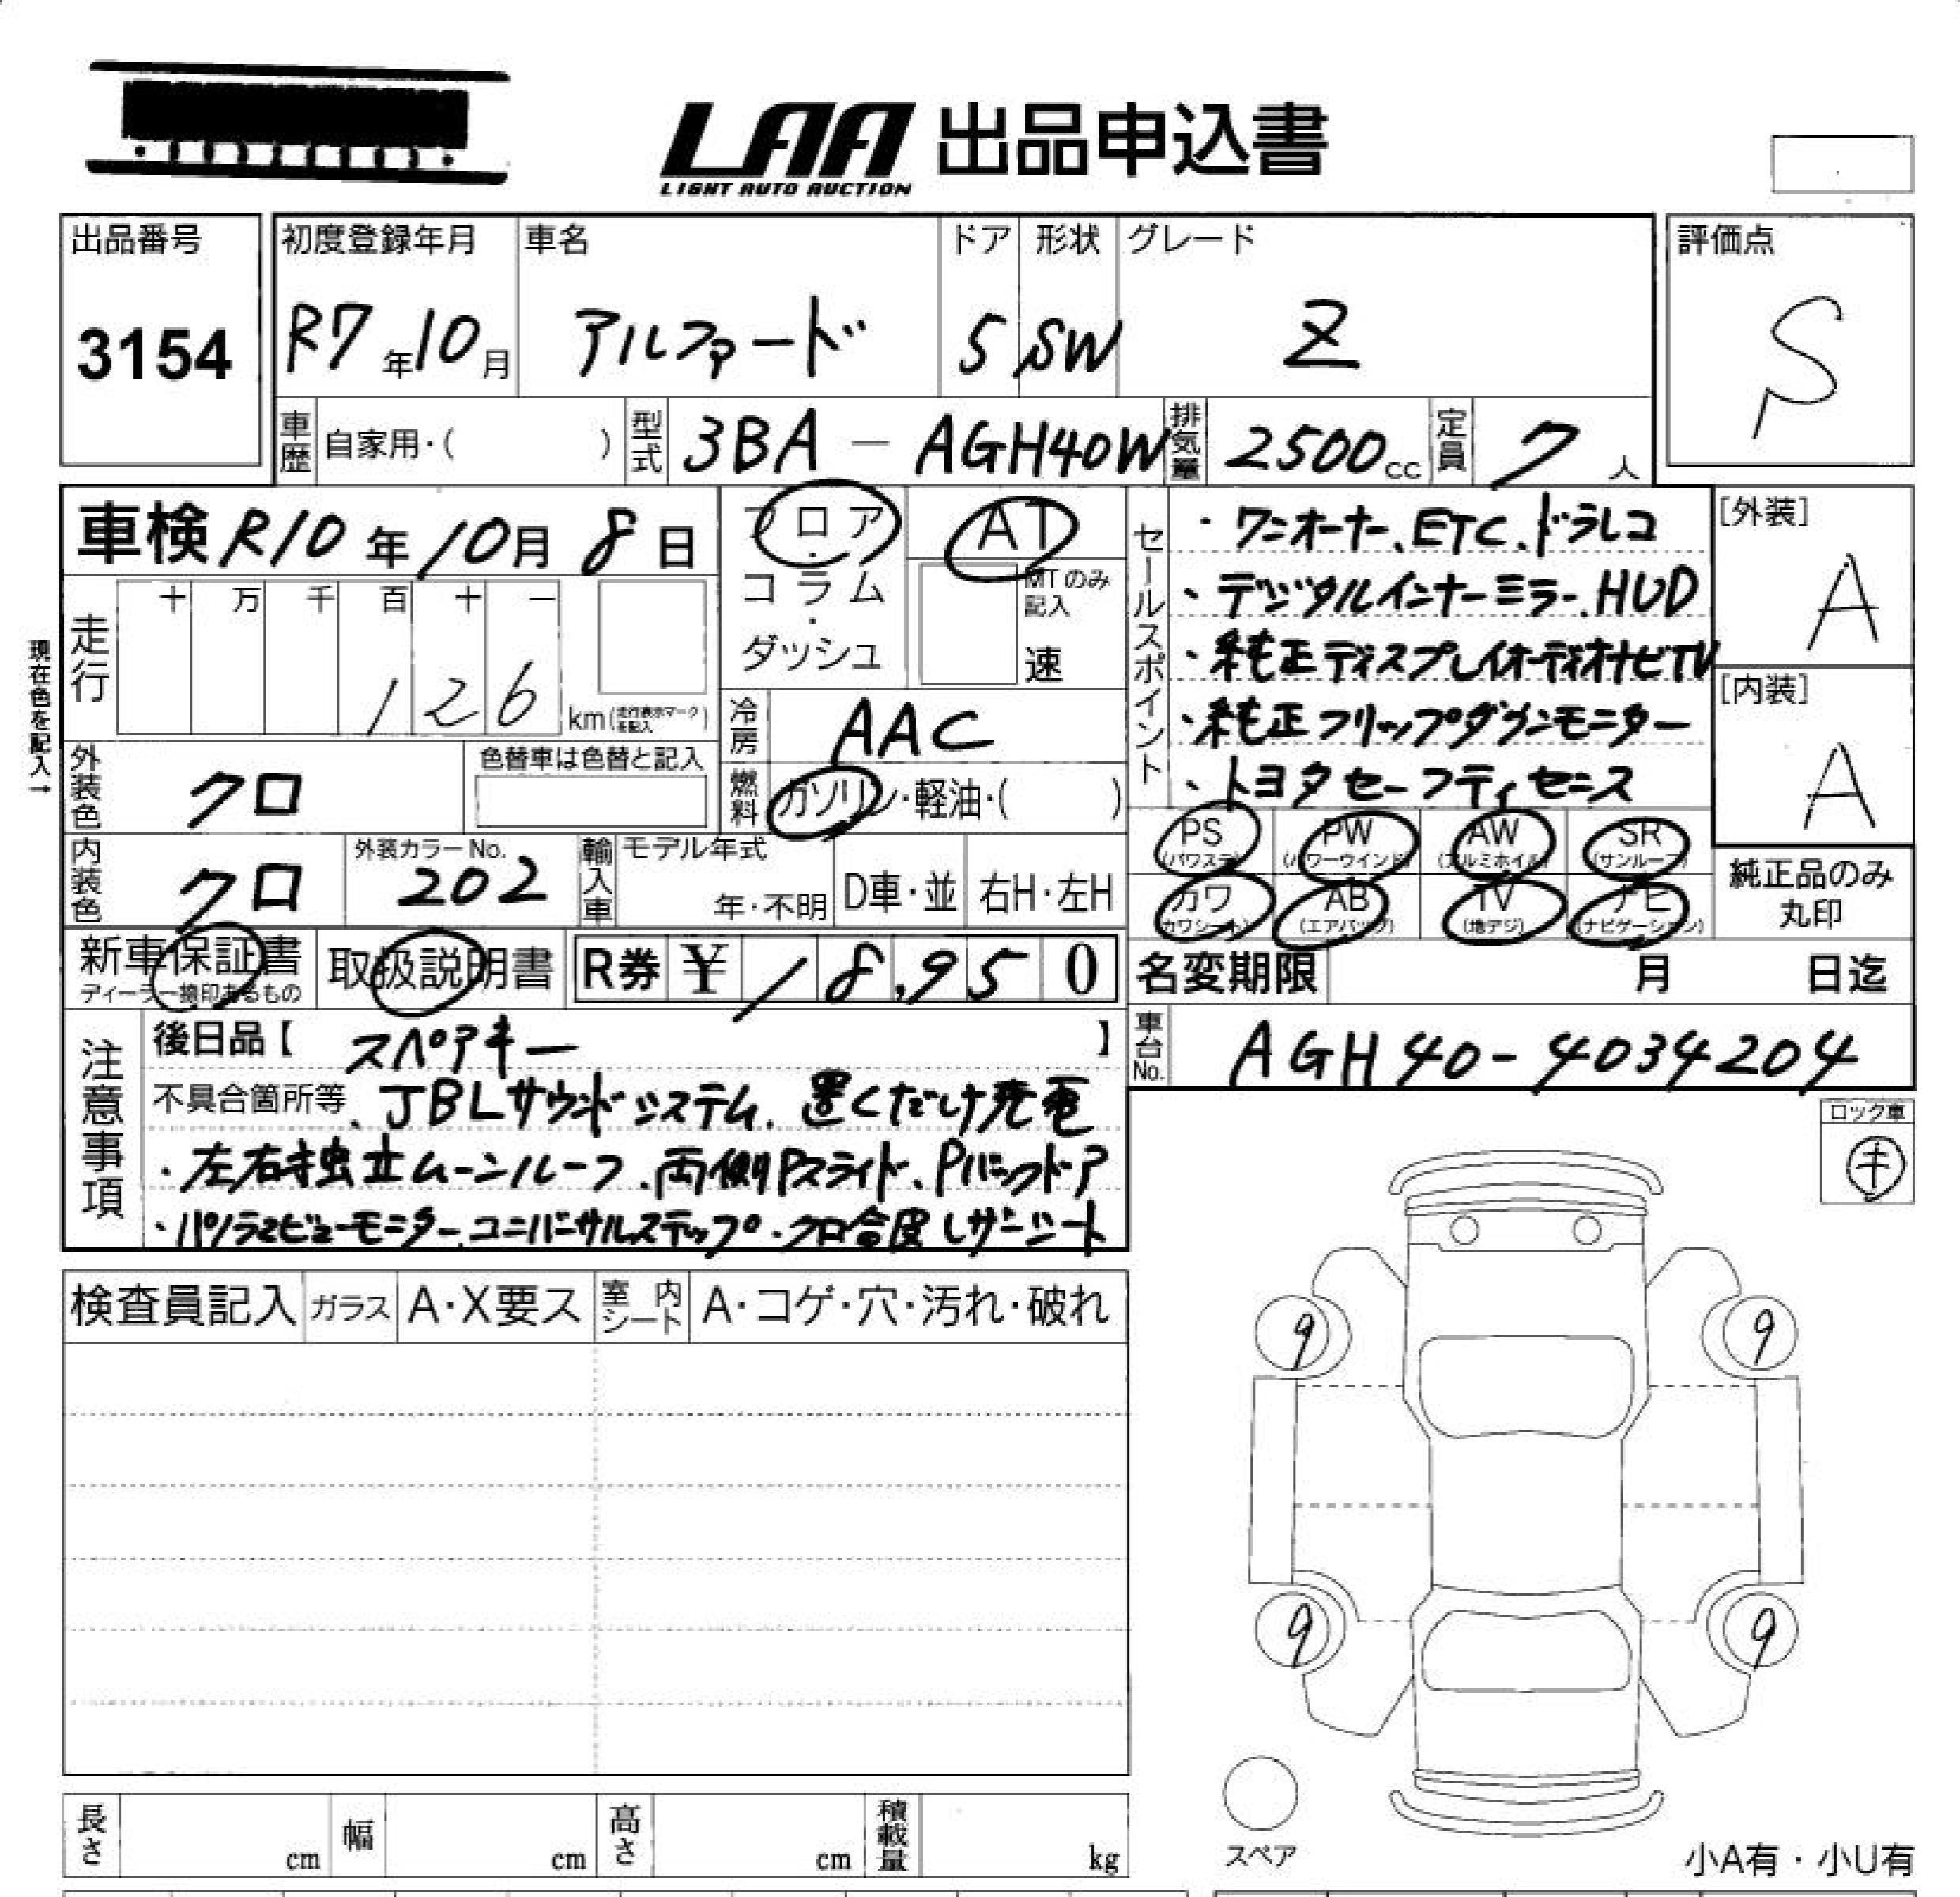 LAA 出品申込書
LIGHT AUTO AUCTION
出品番号 初度登録年月 車名 ドア 形状 グレード 評価点
3154 R7年10月 アルファード 5 SW Z S
車歴 自家用・( ) 型式 3BA - AGH40W 排気量 2500cc 定員 7人
車検 R10年10月8日
フロア・コラム・ダッシュ
AT
MTのみ記入
速
セールスポイント
・ワンオーナー、ETC、ドラレコ
・デジタルインナーミラー、HUD
・純正ディスプレイオーディオナビTV
・純正フリップダウンモニター
・トヨタセーフティセンス
[外装]
A
[内装]
A
現在色を記入→
走行 十 万 千 百 十 一
126 km(走行表示マークを記入)
冷房 AAC
燃料 ガソリン・軽油・( )
外装色 クロ 色替車は色替と記入
内装色 クロ 外装カラーNo. 202
輸入車 モデル年式 年・不明 D車・並 右H・左H
PS (パワステ) PW (パワーウインド) AW (アルミホイル) SR (サンルーフ)
カワ (カワシート) AB (エアバッグ) TV (地デジ) ナビ (ナビゲーション)
純正品のみ
丸印
新車保証書 取扱説明書 R券 ¥18,950
ディーラー検印あるもの
名変期限 月 日迄
車台No. AGH40-4034204
注意事項
後日品【 スペアキー 】
不具合箇所等、JBLサウンドシステム、置くだけ充電
・左右独立ムーンルーフ、両側Pスライド、Pバックドア
・パノラマビューモニター、ユニバーサルステップ・クロ合皮レザーシート
ロック車
キ
検査員記入 ガラス A・X要ス 室内シート A・コゲ・穴・汚れ・破れ
9 9
9 9
スペア
小A有・小U有
長さ cm 幅 cm 高さ cm 積載量 kg